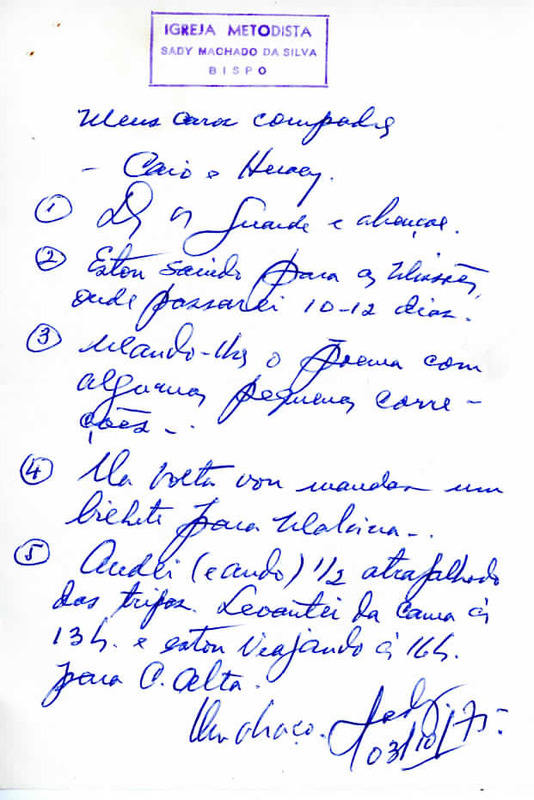 IGREJA METODISTA
SADY MACHADO DA SILVA
BISPO
Meus caros compadres
- Caio e
① Ds os Guarde e abençoe.
② Estou saindo para as Missões,
onde passarei 10-12 dias.
③ Mando-lhes o Poema com
algumas pequenas corre-
ções -.
④ Na volta vou mandar um
bilhete para Malvina -.
⑤ Andei (e ando) 1/2 atrapalhado
das tripas. Levantei da cama às
13h. e estou viajando às 16h.
para C. Alta.
Um abraço. Sady
03/10/75.